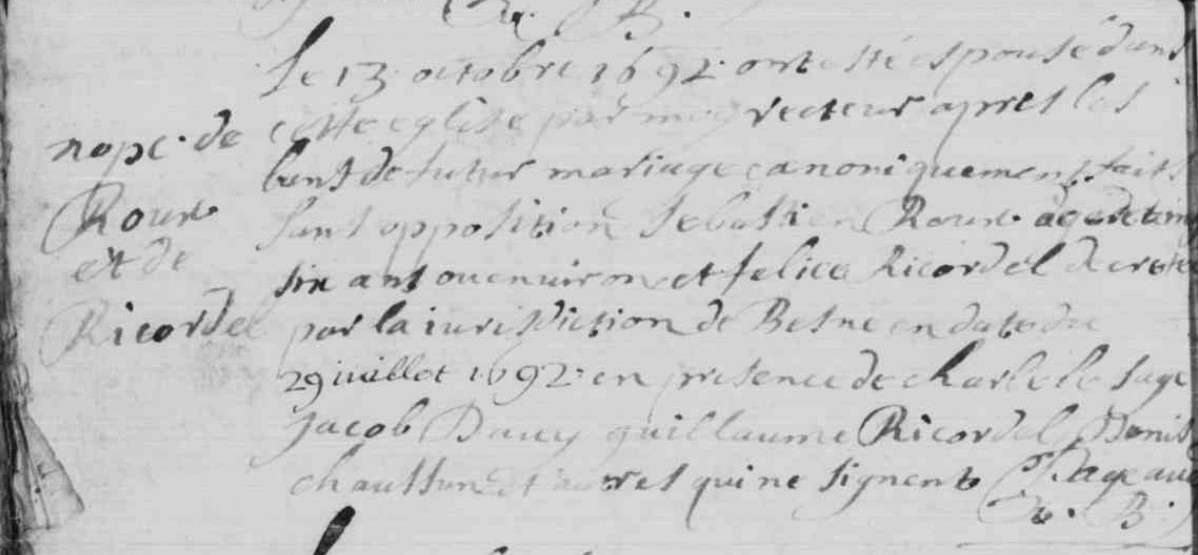 R. B.
Le 13 octobre 1692 ont esté espousé dans
cette eglise par moy recteur apres les
nopc. de
bans de futur mariage canoniquement faits
Roux
sans opposition Sebastien Roux agé de
et de
six ans ou environ et felice Ricordel decretée
Ricordel
par la iurisdiction de Besne en date du
29 iuillet 1692 en presence de charle le sage
Jacob guillaume Ricordel Denis
chausson et autres qui ne signent
R. B.